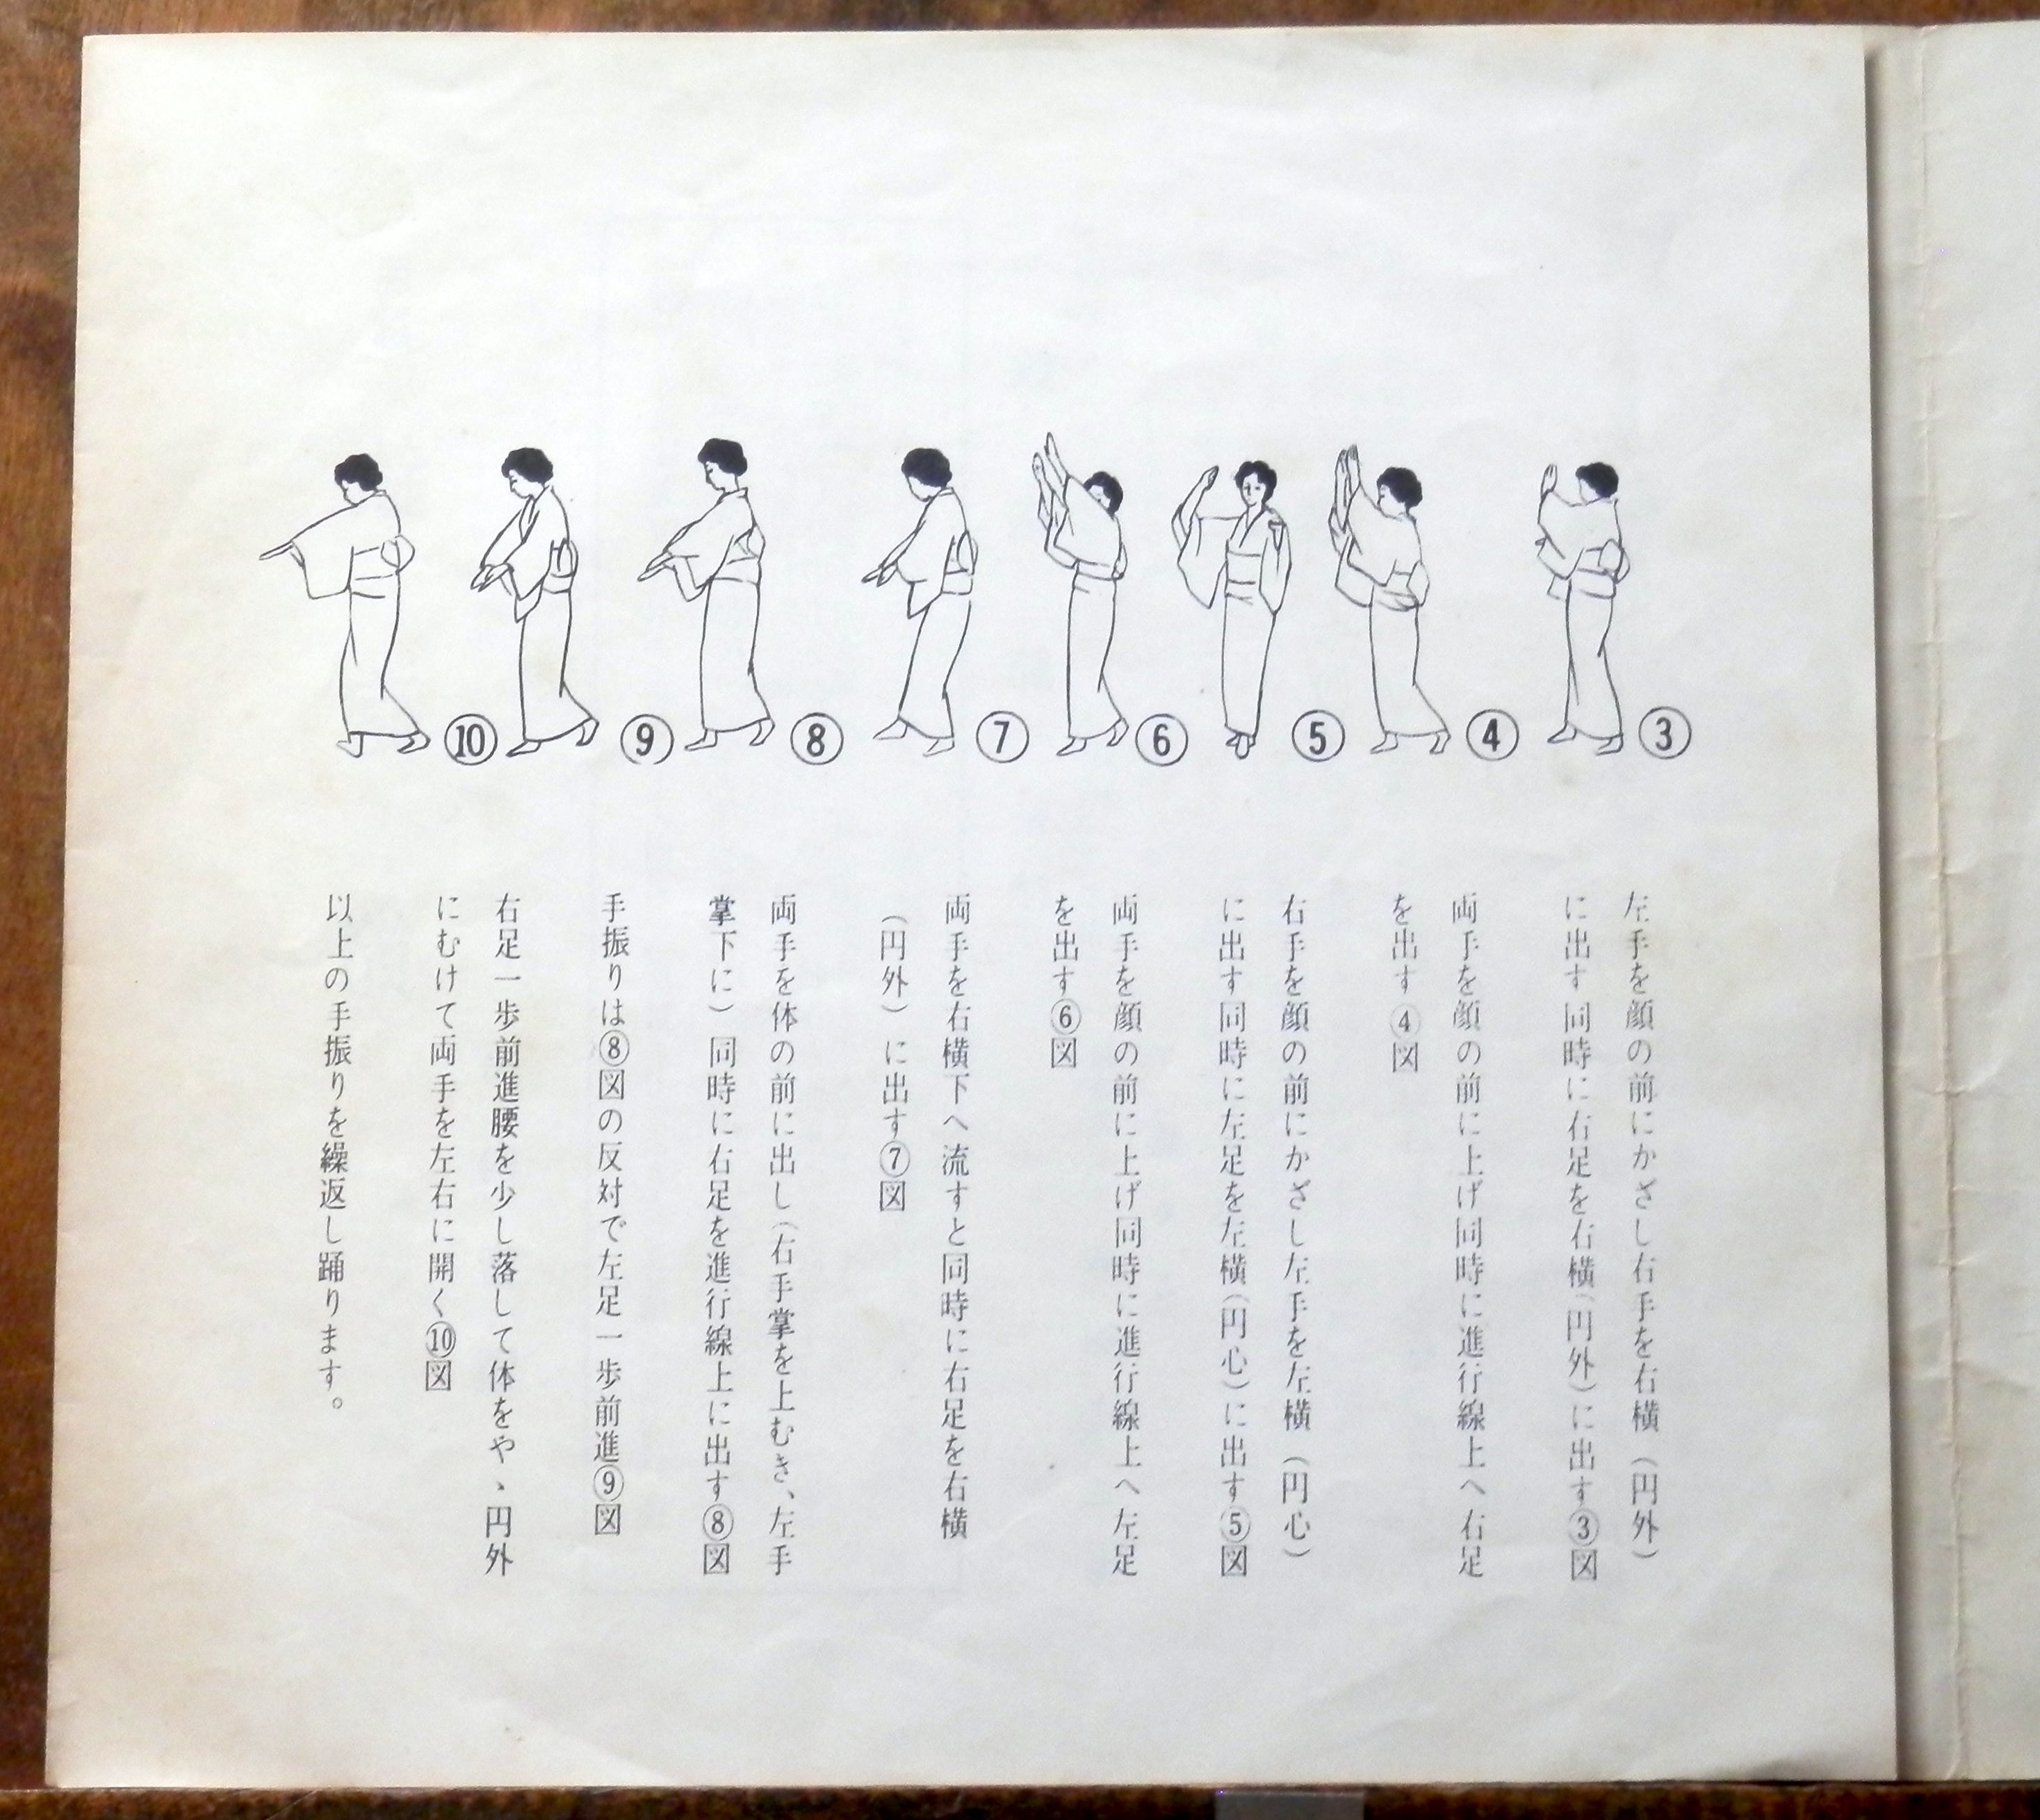 ③
④
⑤
⑥
⑦
⑧
⑨
⑩
左手を顔の前にかざし右手を右横（円外）
に出す同時に右足を右横（円外）に出す③図
両手を顔の前に上げ同時に進行線上へ右足
を出す④図
右手を顔の前にかざし左手を左横（円心）
に出す同時に左足を左横（円心）に出す⑤図
両手を顔の前に上げ同時に進行線上へ左足
を出す⑥図
両手を右横下へ流すと同時に右足を右横
（円外）に出す⑦図
両手を体の前に出し（右手掌を上むき、左手
掌下に）同時に右足を進行線上に出す⑧図
手振りは⑧図の反対で左足一歩前進⑨図
右足一歩前進腰を少し落して体をやゝ円外
にむけて両手を左右に開く⑩図
以上の手振りを繰返し踊ります。